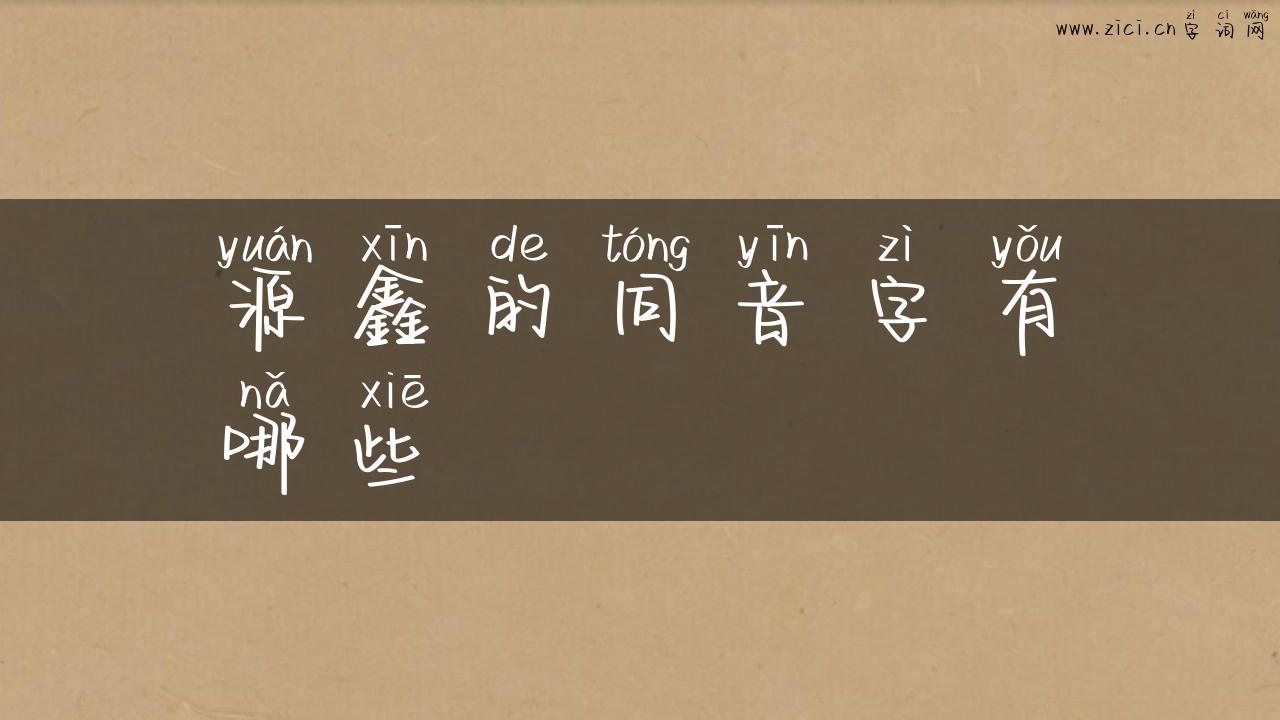 zì cí wǎng
www.zici.cn 字词网
yuán xīn de tóng yīn zì yǒu
源鑫的同音字有
nǎ xiē
哪些